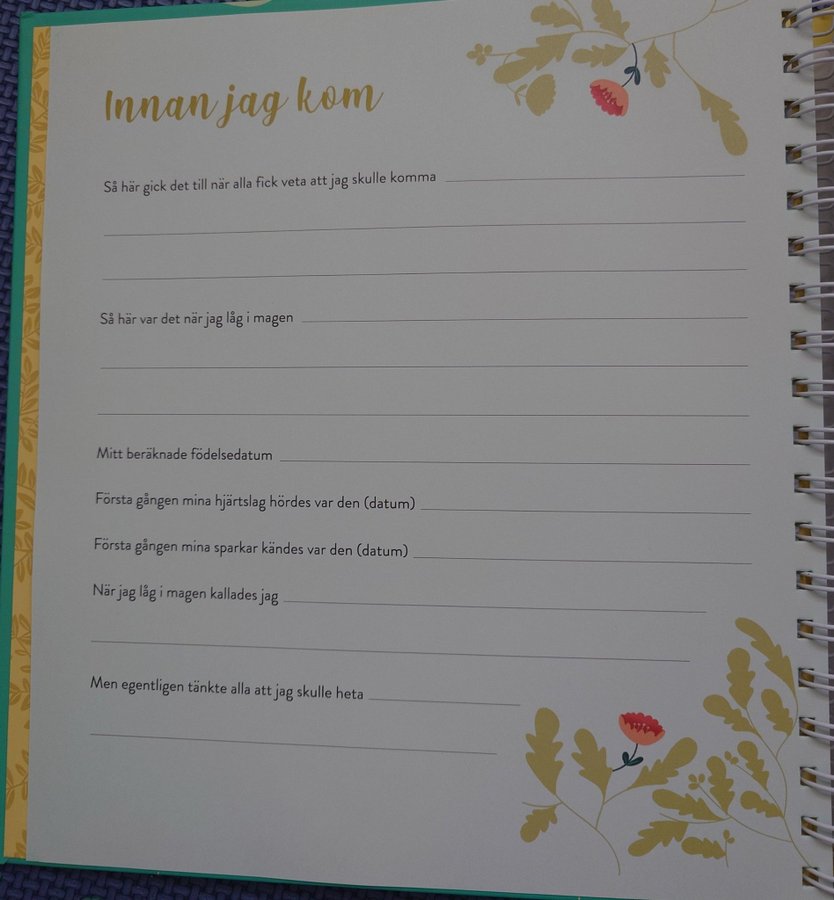 Innan jag kom
Så här gick det till när alla fick veta att jag skulle komma
Så här var det när jag låg i magen
Mitt beräknade födelsedatum
Första gången mina hjärtslag hördes var den (datum)
Första gången mina sparkar kändes var den (datum)
När jag låg i magen kallades jag
Men egentligen tänkte alla att jag skulle heta